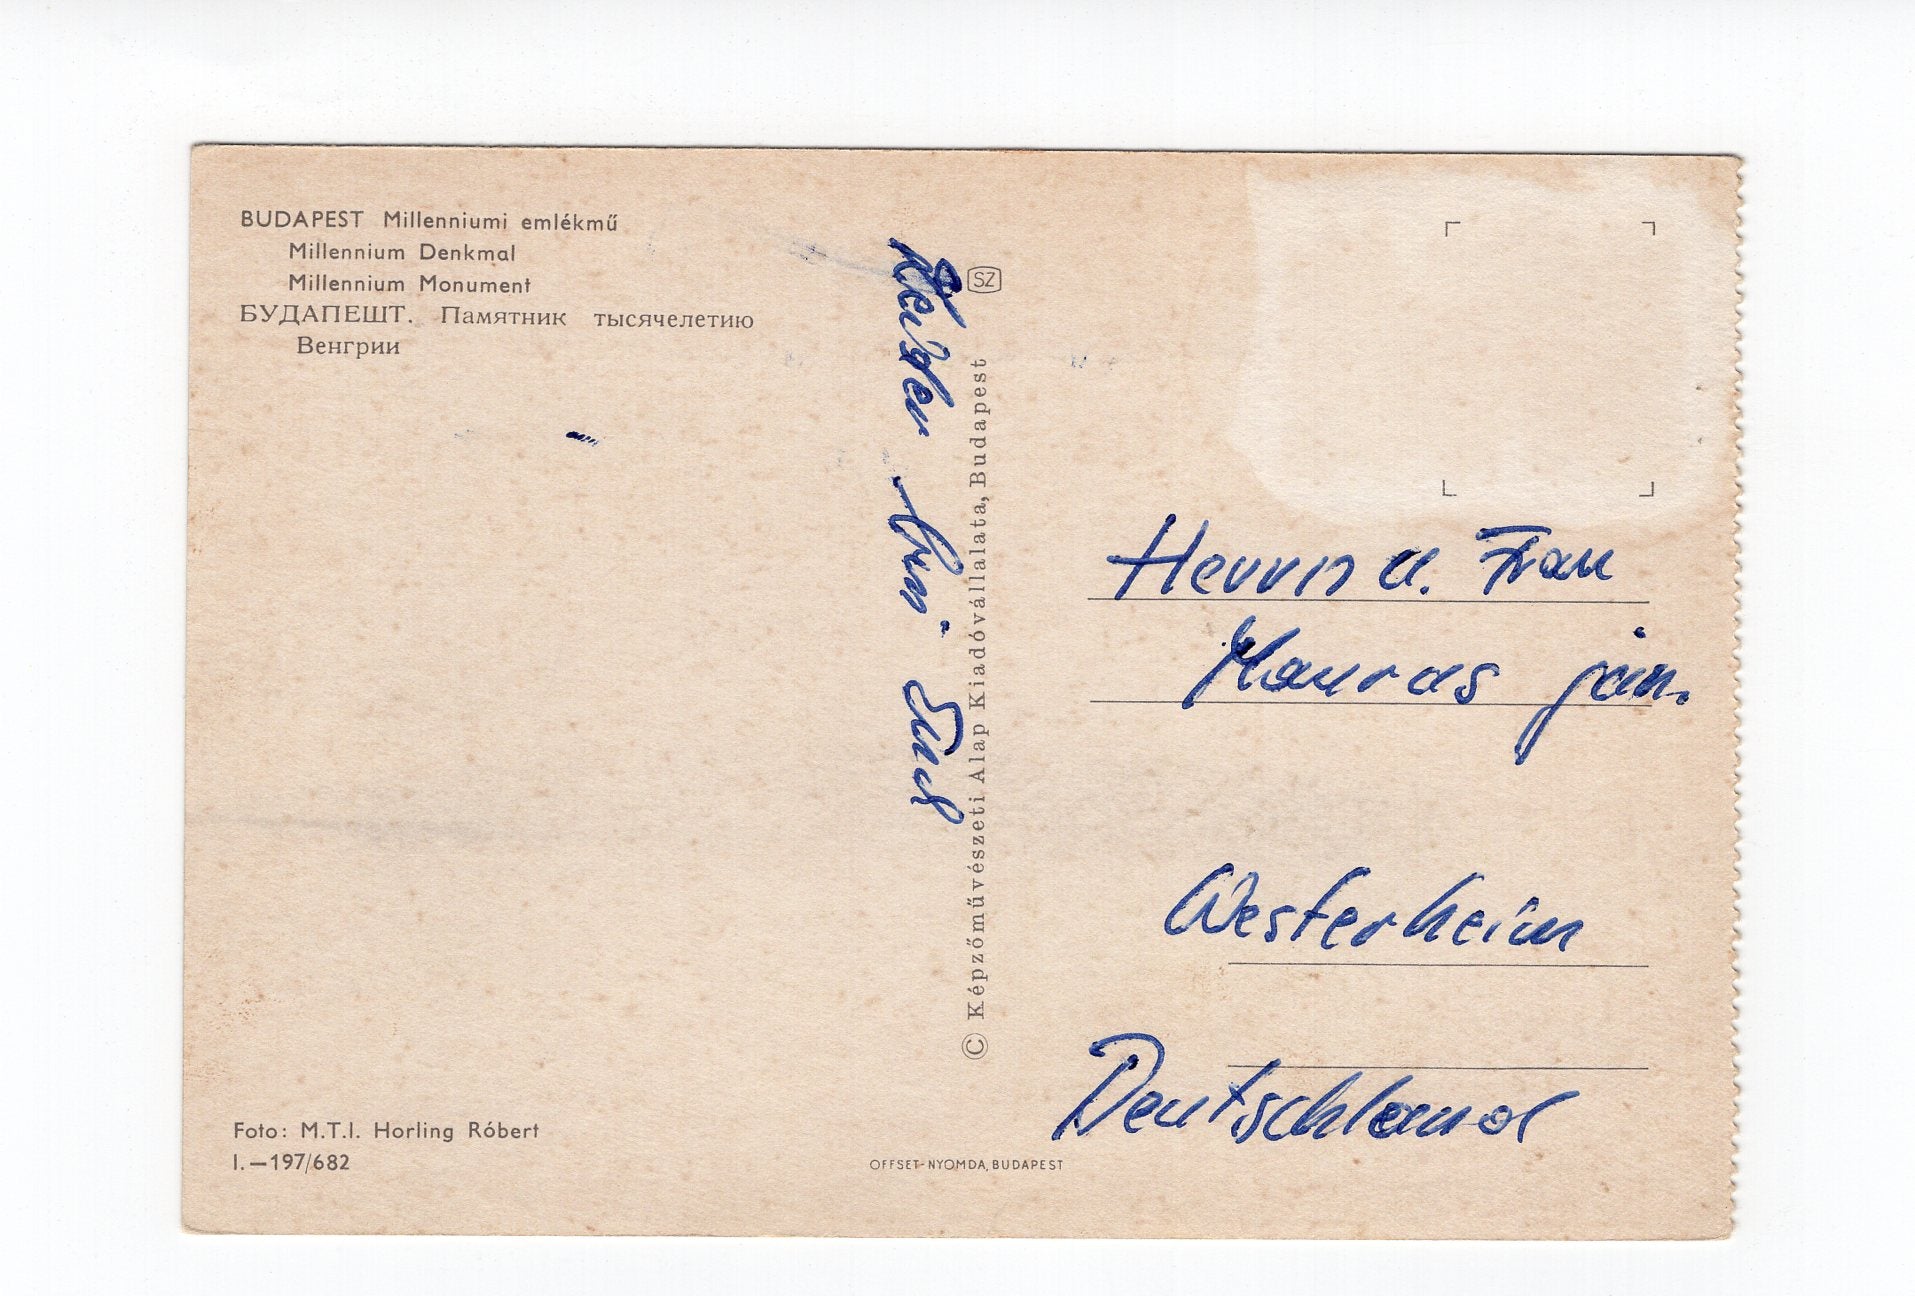 BUDAPEST Millenniumi emlékmű
Millennium Denkmal
Millennium Monument
БУДАПЕШТ. Памятник тысячелетию
Венгрии
Foto: M.T.I. Horling Róbert
I.—197/682
SZ
© Képzőművészeti Alap Kiadóvállalata, Budapest
OFFSET-NYOMDA, BUDAPEST
Herrn u. Frau
jun.
Westerheim
Deutschland